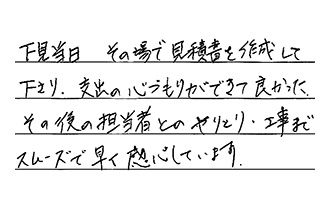 下見当日 その場で見積書を作成して
下さり、支出の心づもりができて良かった.
その後の担当者とのやりとり・工事まで
スムーズで早く感心しています.